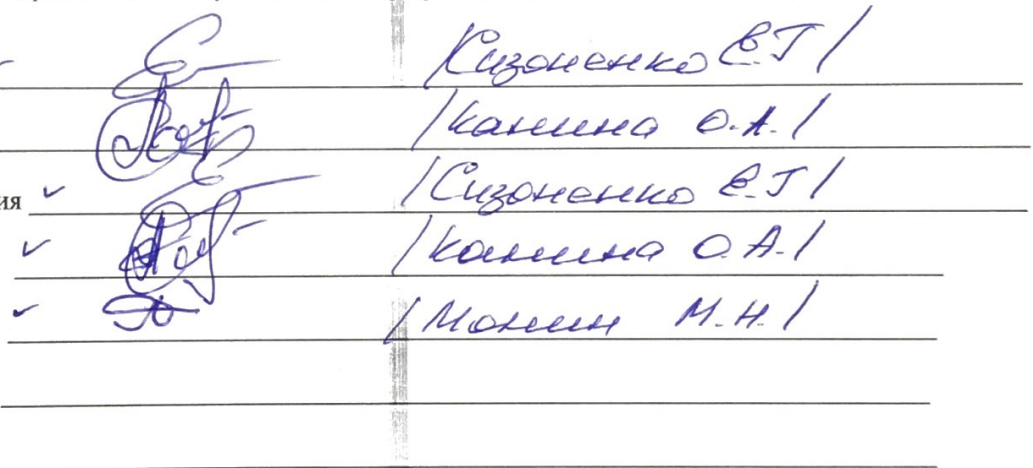 /Сизоненко Е.Г/
/Канина О.А./
ия /Сизоненко Е.Г/
/Канина О.А./
/Монин М.Н./